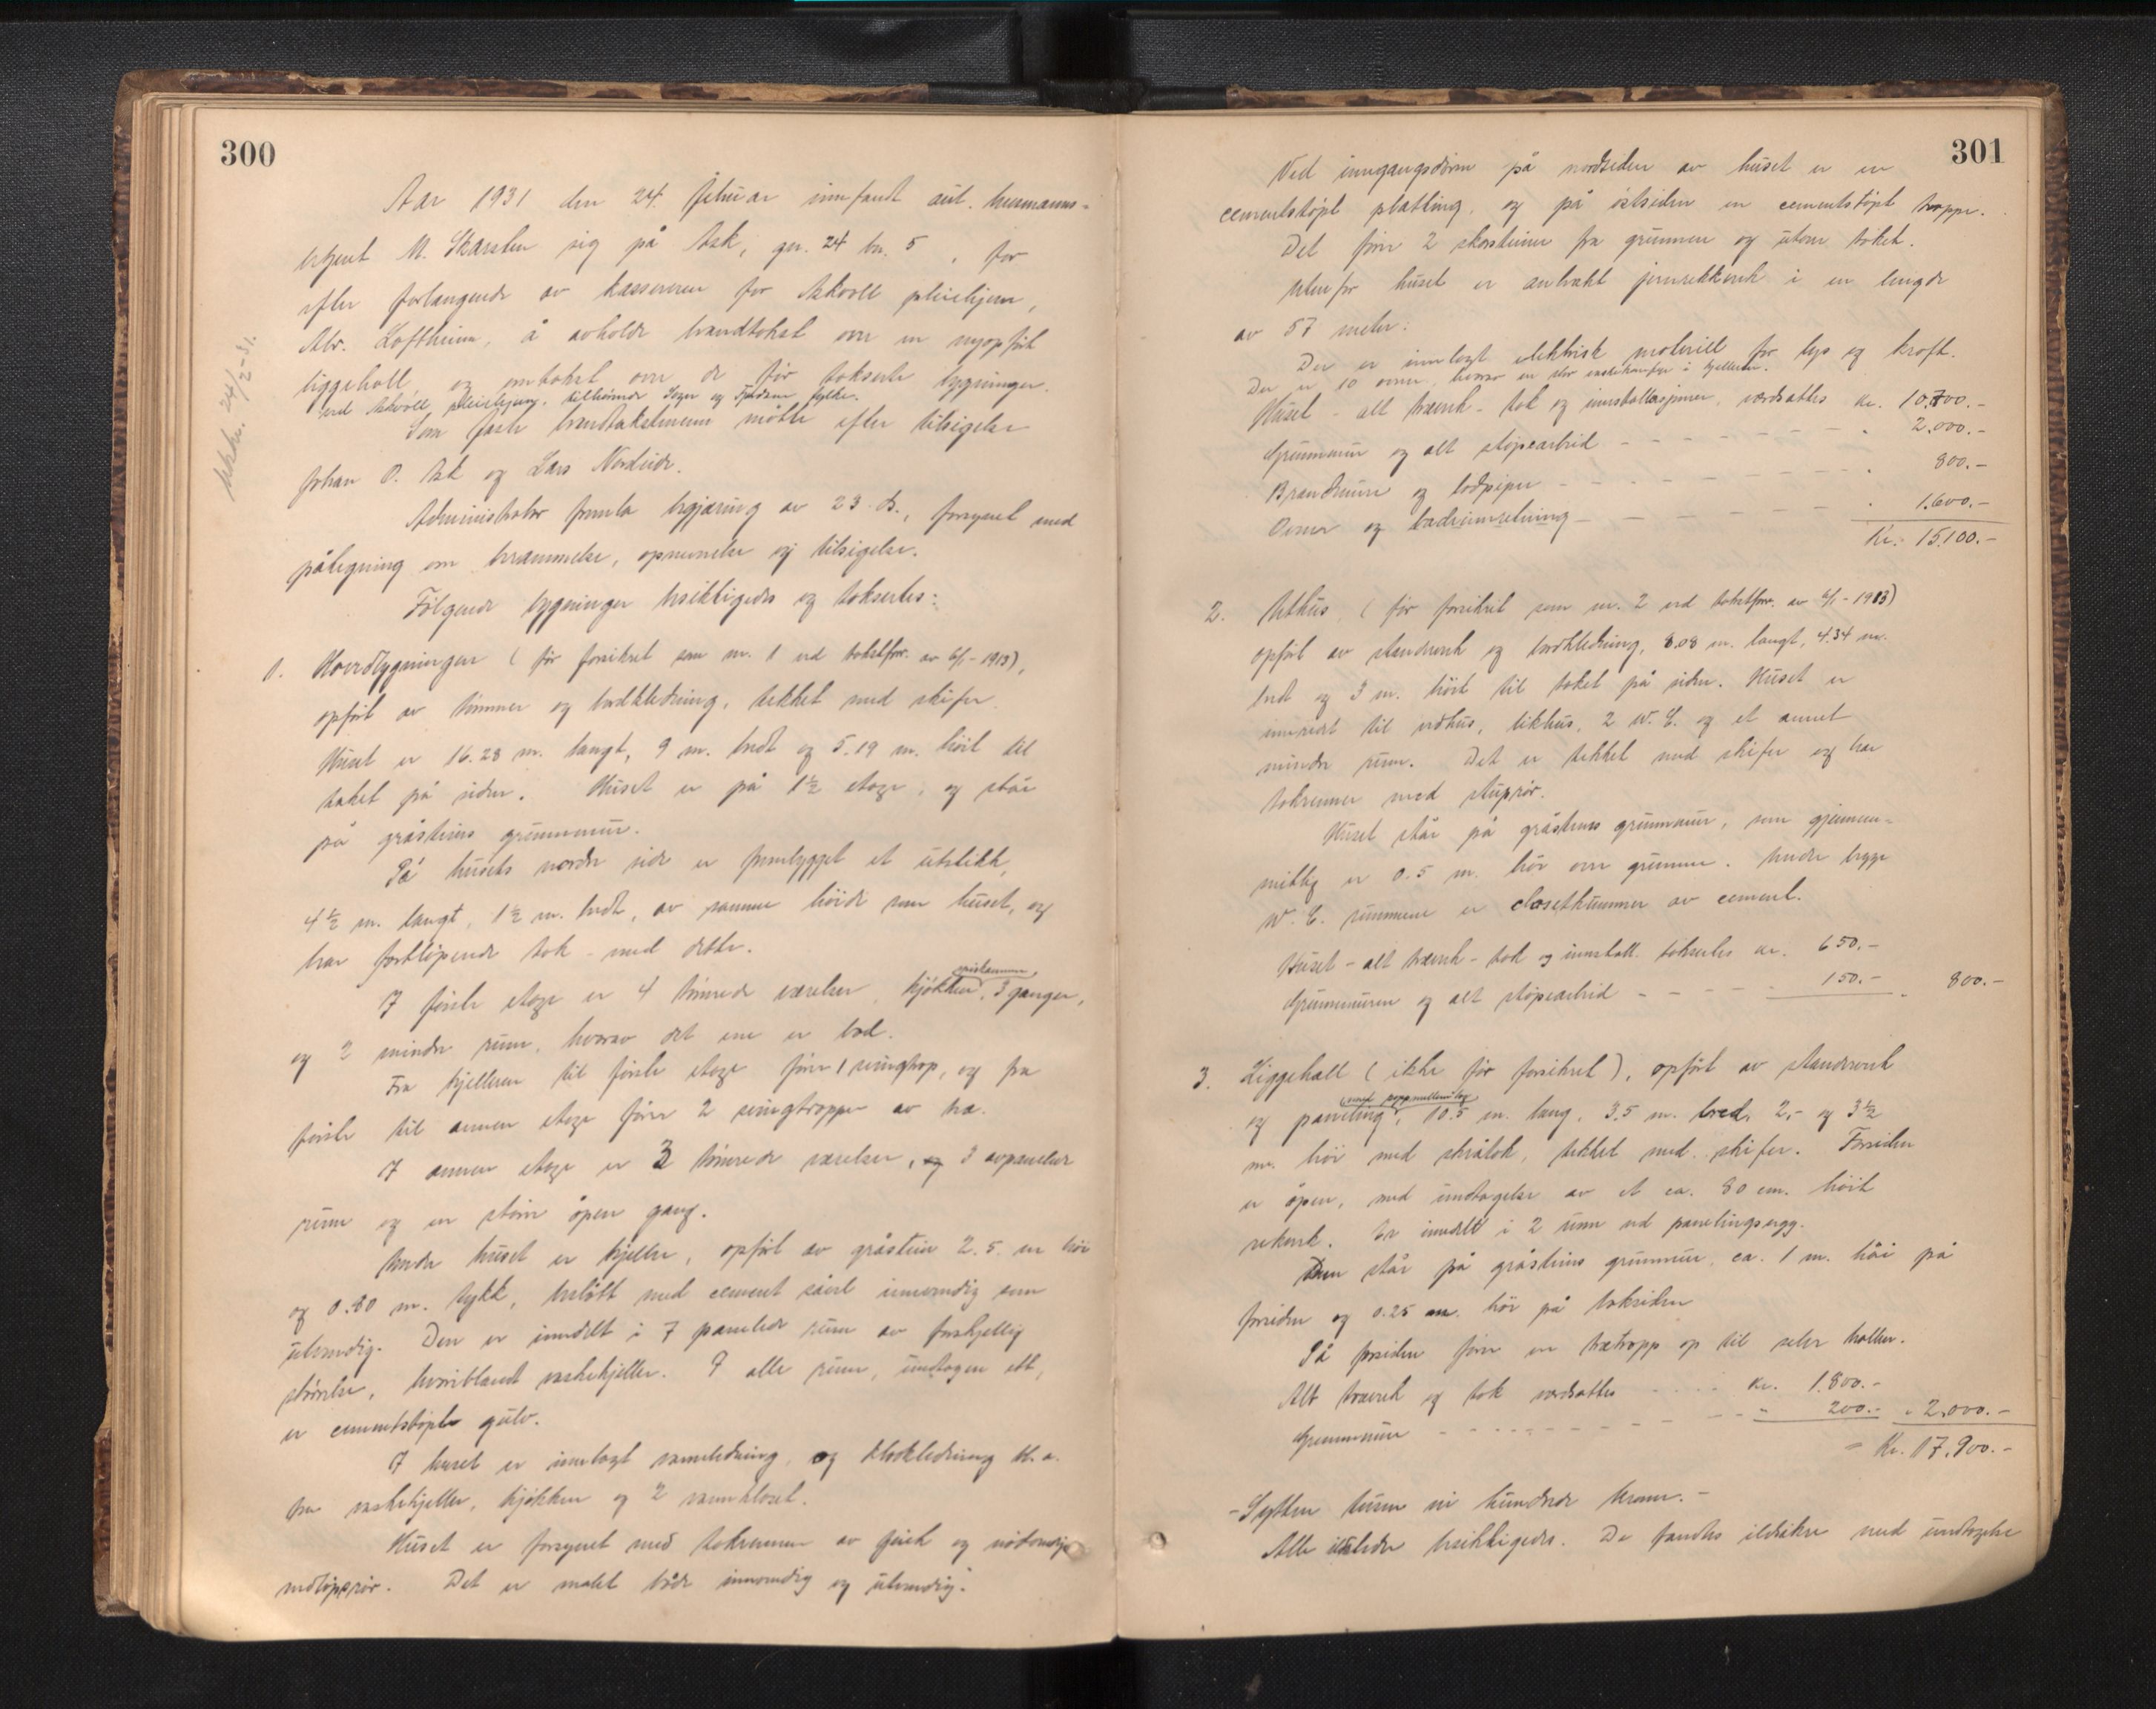 300
Aar 1931 den 24. februar innfandt aut. lensmanns-
betjent M. Skarsten sig på Ask, gnr. 24 bn. 5, for
efter forlangende av kassereren for Askvoll pleiehjem,
Alv. Loftheim, å avholde brandtakst over en nyopført
liggehall og omtakst over de før takserte bygninger
ved Askvoll pleiehjem, tilhørende Sogn og Fjordane fylke.
Som faste brandtakstmenn møtte efter tilsigelse
Johan O. Ask og Lars Nordeide.
Administrator fremla begjæring av 23. ds., forsynet med
påtegning om berammelse, opnevnelse og tilsigelse.
Følgende bygninger besiktigedes og taksertes:
1. Hovedbygningen (før forsikret som nr. 1 ved takstforr. av 6/1-1913),
opført av tømmer og bordkledning, tekket med skifer.
Huset er 16.28 m. langt, 9 m. bredt og 5.19 m. høit til
taket på siden. Huset er på 1½ etage, og står
på gråsteins grunnmur.
På husets nordre side er frembygget et utstikk,
4½ m. langt, 1½ m. bredt, av samme høide som huset, og
har fortløpende tak med dette.
I første etage er 4 tømrede værelser, kjøkken, spiskammer, 3 ganger,
og 2 mindre rum, hvorav det ene er bad.
Fra kjelleren til første etage fører 1 svingtrap, og fra
første til annen etage fører 2 svingtrapper av tre.
I annen etage er 3 tømrede værelser, og 3 avpanelede
rum og en større åpen gang.
Under huset er kjeller, opført av gråstein 2.5. m høi
og 0.80 m. tykk, beslått med cement såvel innvendig som
utvendig. Den er inndelt i 7 panelede rum av forskjellig
størrelse, hvoriblandt vaskekjeller. I alle rum, undtagen ett,
er cementstøpte gulv.
I huset er innlagt vannledning, og kloakledning bl.a.
fra vaskekjeller, kjøkken og 2 vannkloset.
Huset er forsynet med takrenner av zink og nødvendige
nedløpsrør. Det er malet både innvendig og utvendig.
24/2-31.
301
Ved inngangsdøren på nordsiden av huset er en
cementstøpt platting, og på østsiden en cementstøpt trappe.
Det fører 2 skorsteiner fra grunnen og utover taket.
Utenfor huset er anbrakt jernrekkverk i en lengde
av 57 meter.
Der er innlagt elektrisk materiell for lys og kraft.
Der er 10 ovner, hvorav en stor i kjelleren.
Huset - alt treverk - tak og innstallasjoner, verdsattes kr. 10.700.-
Grunnmur og alt støpearbeid - - - " 2.000.-
Brandmure og lodpiper - - - " 800.-
Ovner og badeinnretning - - - " 1.600.-
Kr. 15.100.-
2. Uthus, (før forsikret som nr. 2 ved takstforr. av 6/1-1913)
opført av standverk og bordkledning, 8.08 m. langt, 4.34 m.
bredt og 3 m. høit til taket på siden. Huset er
innredet til vedhus, likhus, 2 W.C. og et annet
mindre rum. Det er tekket med skifer og har
takrenner med stuprør.
Huset står på gråsteins grunnmur, som gjennem-
snittlig er 0.5 m. høi over grunnen. Under begge
W.C. rummene er closetkummer av cement.
Huset - alt treverk - tak og innstall. taksertes kr. 650.-
Grunnmuren og alt støpearbeid - - - 150.- " 800.-
3. Liggehall (ikke før forsikret), opført av standverk
og paneling med pappmellemlag, 10.5 m. lang, 3.5 m. bred, 2,- og 3½
m. høi med skråtak, tekket med skifer. Forsiden
er åpen, med undtagelse av et ca. 80 cm. høit
rekverk. Er inndelt i 2 rum ved panelingsvegg.
Den står på gråsteins grunnmur, ca. 1 m. høi på
forsiden og 0.25 m. høi på baksiden
På forsiden fører en tretrapp op til selve hallen.
Alt treverk og tak verdsattes . . . . kr. 1.800.-
Grunnmur - - - " 200.- " 2.000.-
= Kr. 17.900.-
- Sytten tusen ni hundrede kroner. -
Alle ildsteder besiktigedes. De fandtes ildsikre med undtagelse